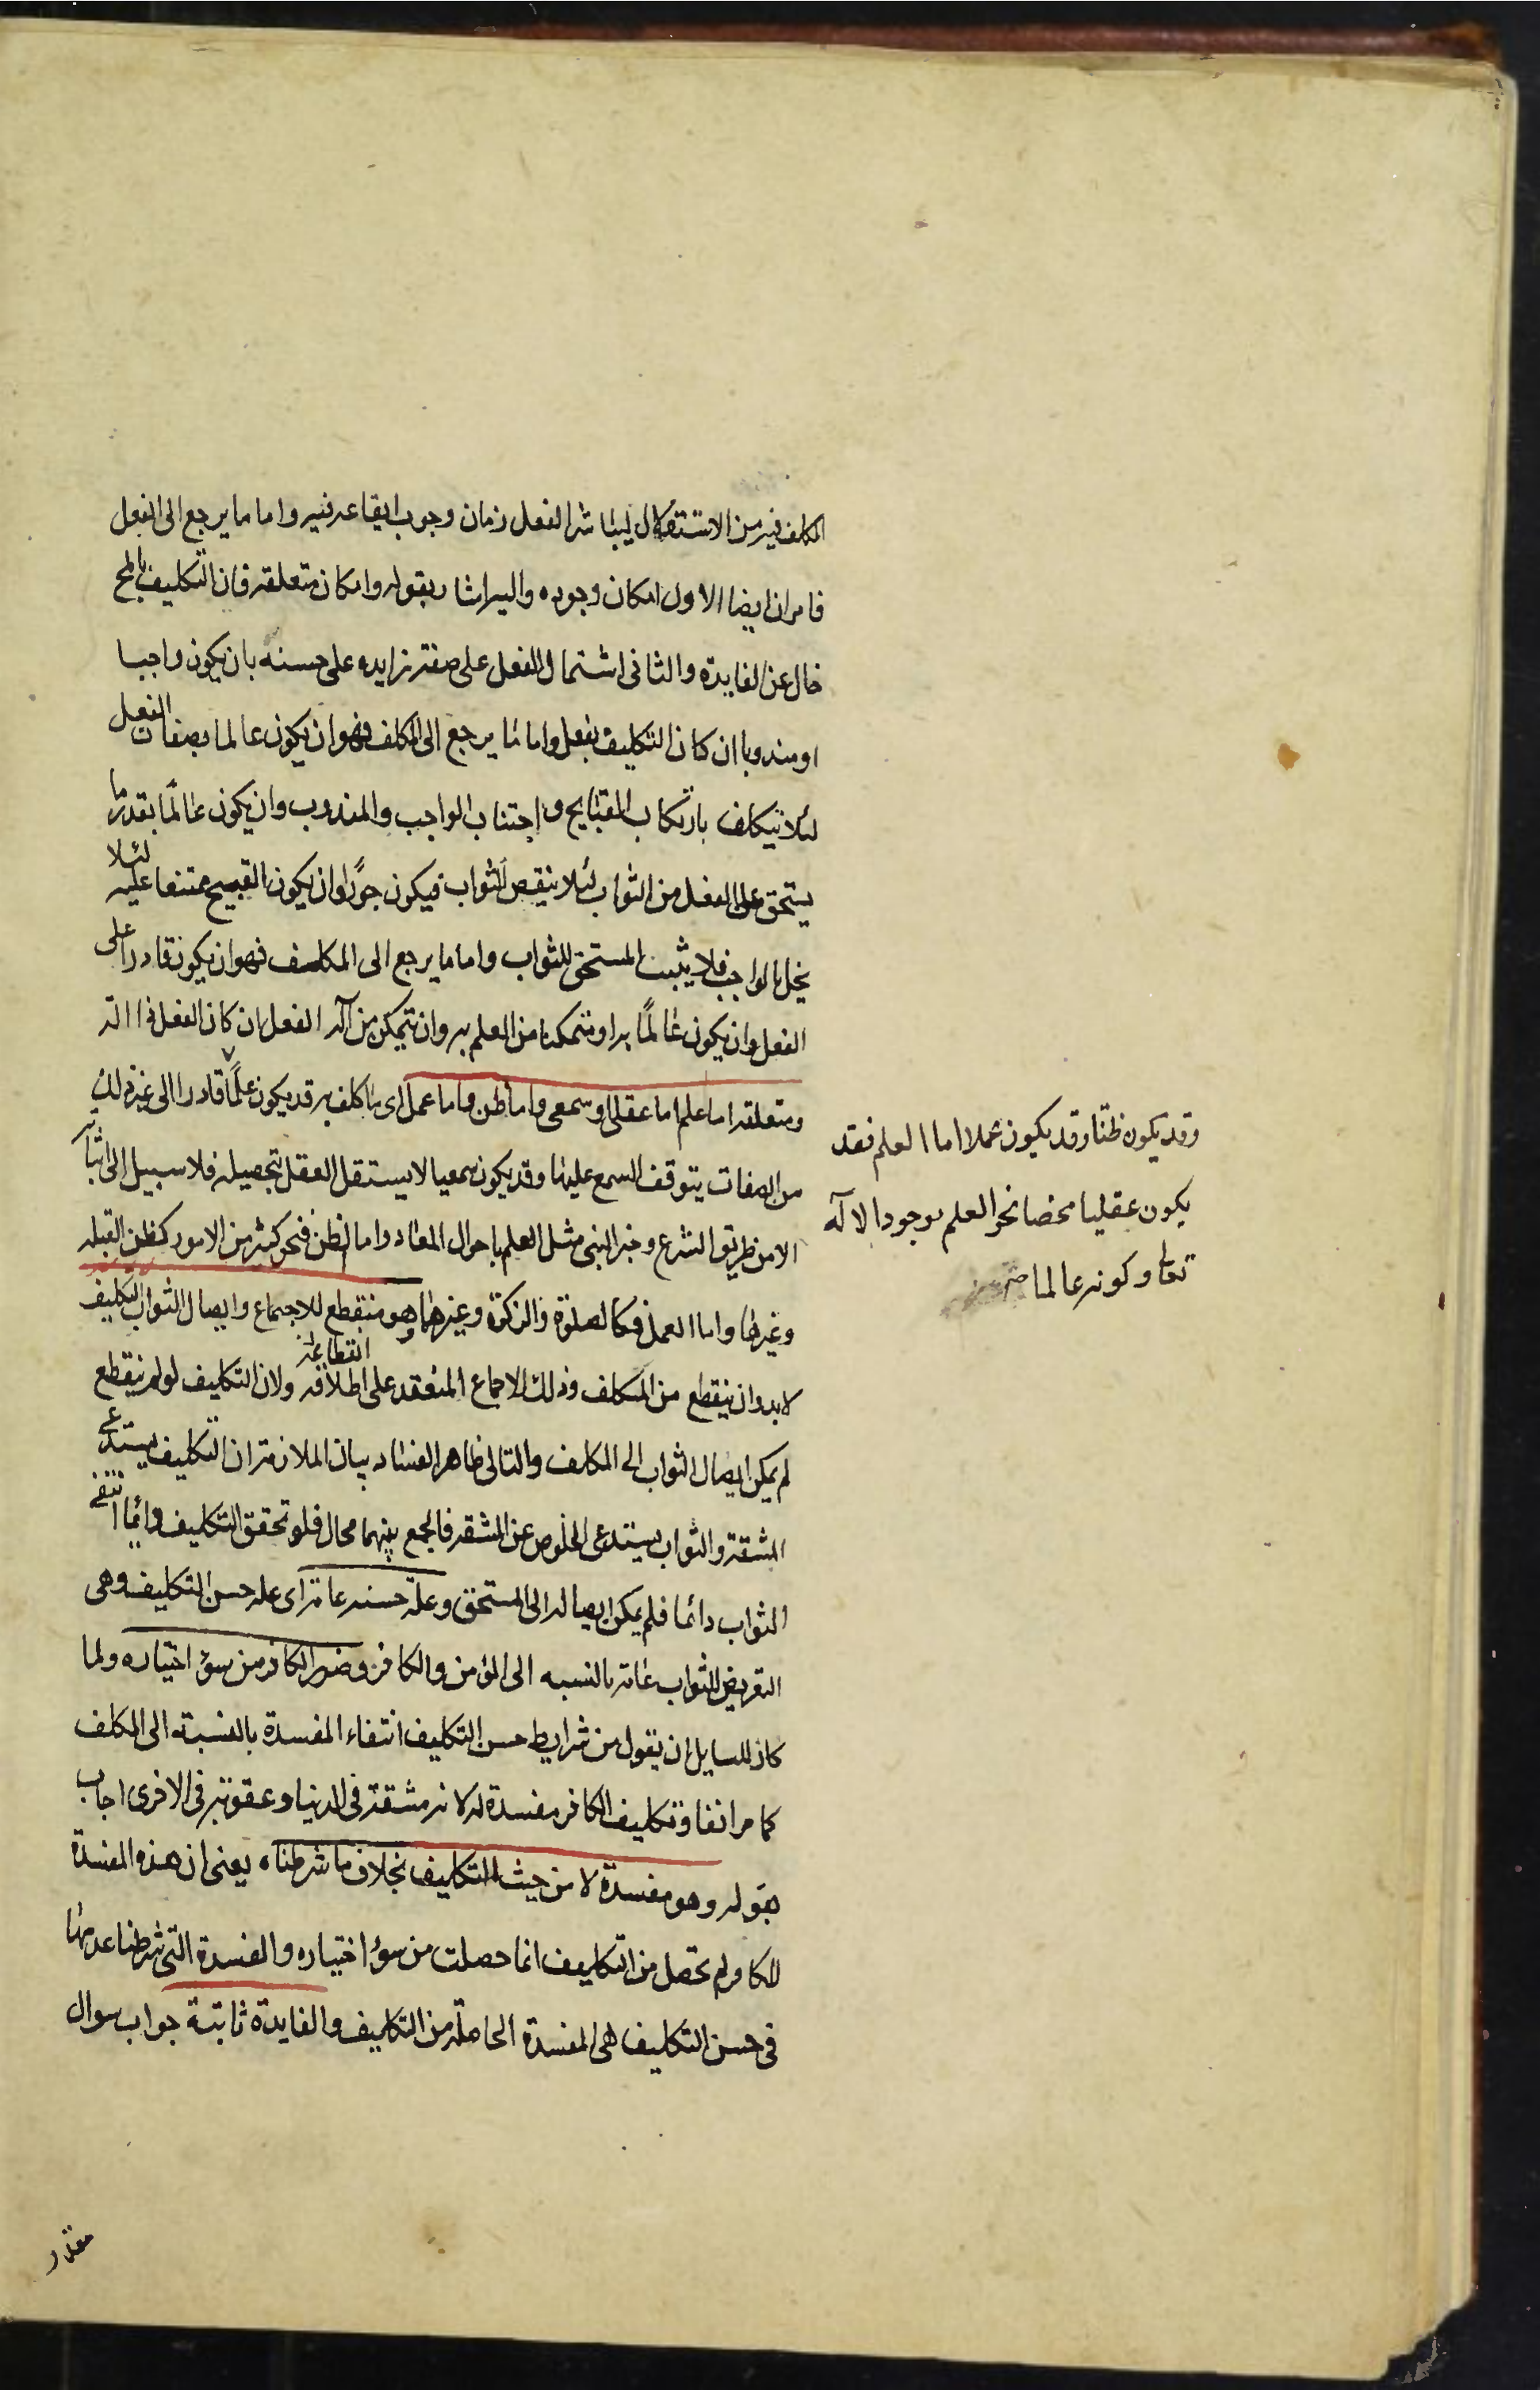 المكلف فيه من الاستدلال ليباشر الفعل زمان وجوب ايقاعه فيه واما ما يرجع الى الفعل
فامران ايضا الاول امكان وجوده واليه اشار بقوله وامكان متعلقه فان التكليف بالمح
خال عن الفايدة والثانى اشتمال الفعل على صفة زايده على حسنه بان يكون واجبا
او مندوبا ان كان التكليف بفعل واما ما يرجع الى المكلف فهو ان يكون عالما بصفات الفعل
لئلا يتكلف بارتكاب القبايح واجتناب الواجب والمندوب وان يكون عالمًا بقدر ما
يستحق على الفعل من الثواب لئلا ينقص الثواب فيكون جورًا وان يكون القبيح ممتنعا عليه لئلا
يخل بالواجب فلا يثيب المستحق للثواب واما ما يرجع الى المكلف فهو ان يكون قادرا على
الفعل وان يكون عالمًا به او متمكنا من العلم به وان يتمكن من آلة الفعل ان كان الفعل ذا الة
ومتعلقه اما علم اما عقلى او سمعى واما ظن واما عمل اى ما كلف به قد يكون علمًا قادرا الى غير ذلك
من الصفات يتوقف السمع عليها وقد يكون سمعيا لا يستقل العقل بتحصيله فلا سبيل الى اثباته
الا من طريق الشرع وخبر النبى مثل العلم باحوال المعاد واما الظن فنحو كثير من الامور كظن القبله
وغيرها واما العمل فكالصلوة والزكوة وغيرهما وهو منقطع للاجماع وايصال الثواب التكليف
لا بد وان ينقطع من المكلف وذلك الاجماع المنعقد على اطلاقه انقطاعه ولان التكليف لو لم ينقطع
لم يمكن ايصال الثواب الى المكلف والتالى ظاهر الفساد بيان الملازمة ان التكليف يستدعى
المشقة والثواب يستدعى الخلوص عن المشقه فالجمع بينهما محال فلو تحقق التكليف دائما انتفى
الثواب دائما فلم يمكن ايصاله الى المستحق وعلة حسنه عامة اى علة حسن التكليف وهى
التعريض للثواب عامة بالنسبه الى المؤمن والكافر وضرر الكافر من سوء اختياره ولما
كان للسايل ان يقول من شرايط حسن التكليف انتفاء المفسدة بالنسبة الى المكلف
كما مر انفا وتكليف الكافر مفسدة له لانه مشقة فى الدنيا وعقوبة فى الاخرى اجاب
بقوله وهو مفسدة لا من حيث التكليف بخلاف ما شرطناه يعنى ان هذه المفسدة
للكافر لم تحصل من التكليف انما حصلت من سوء اختياره والمفسدة التى شرطنا عدمها
فى حسن التكليف هى المفسدة الحاصلة من التكليف والفايدة ثابتة جواب سوال
وقد يكون ظنّا وقد يكون عملا اما العلم فقد
يكون عقليا محضا نحو العلم بوجود الاله
تعالى وكونه عالما
مقدر